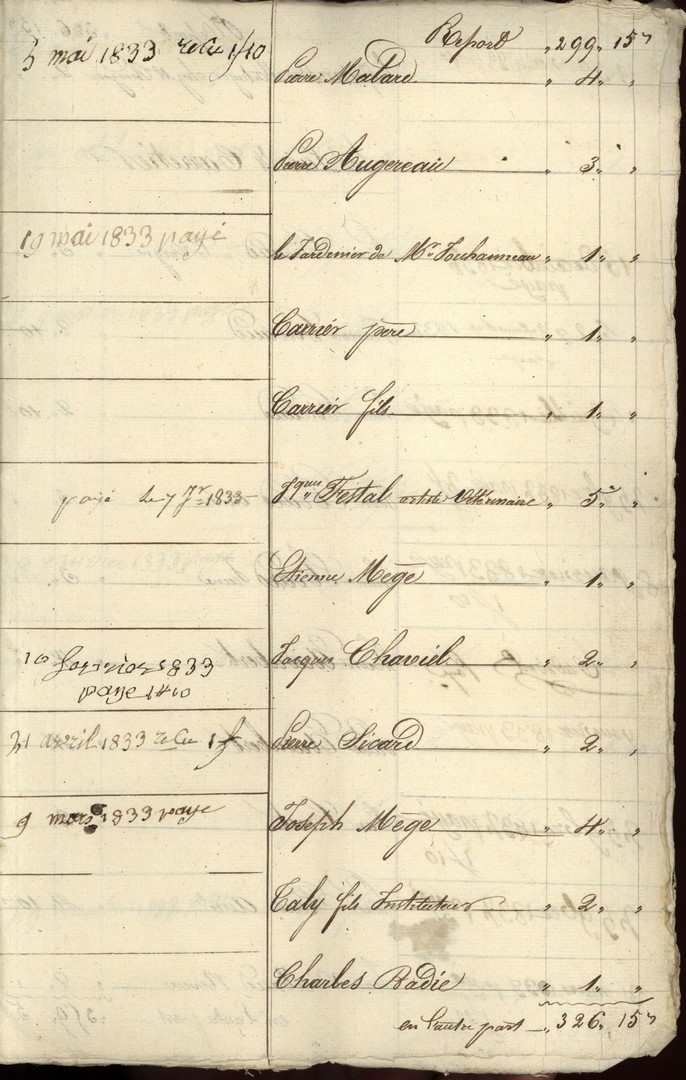 Report „ 299 „ 15 „
5 mai 1833 reçu 1f10
Pierre Matard „ 4 „ „
Pierre Augereau „ 3 „ „
19 mai 1833 payé
le Jardinier de Mr. Jouhanneau „ 1 „ „
Carrier père „ 1 „ „
Carrier fils „ 1 „ „
payé le 7 Jr. 1833
Jques Festal artiste Vétérinaire „ 5 „ „
Etienne Mège „ 1 „ „
10 1833
Jacques Chaviel „ 2 „ „
paye 1f10
21 avril 1833 reçu 1f
Pierre Sicard „ 2 „ „
9 mars 1833 paye
Joseph Mège „ 4 „ „
Taly fils Instituteur „ 2 „ „
Charles Badie „ 1 „ „
en l'autre part „ 326 „ 15 „